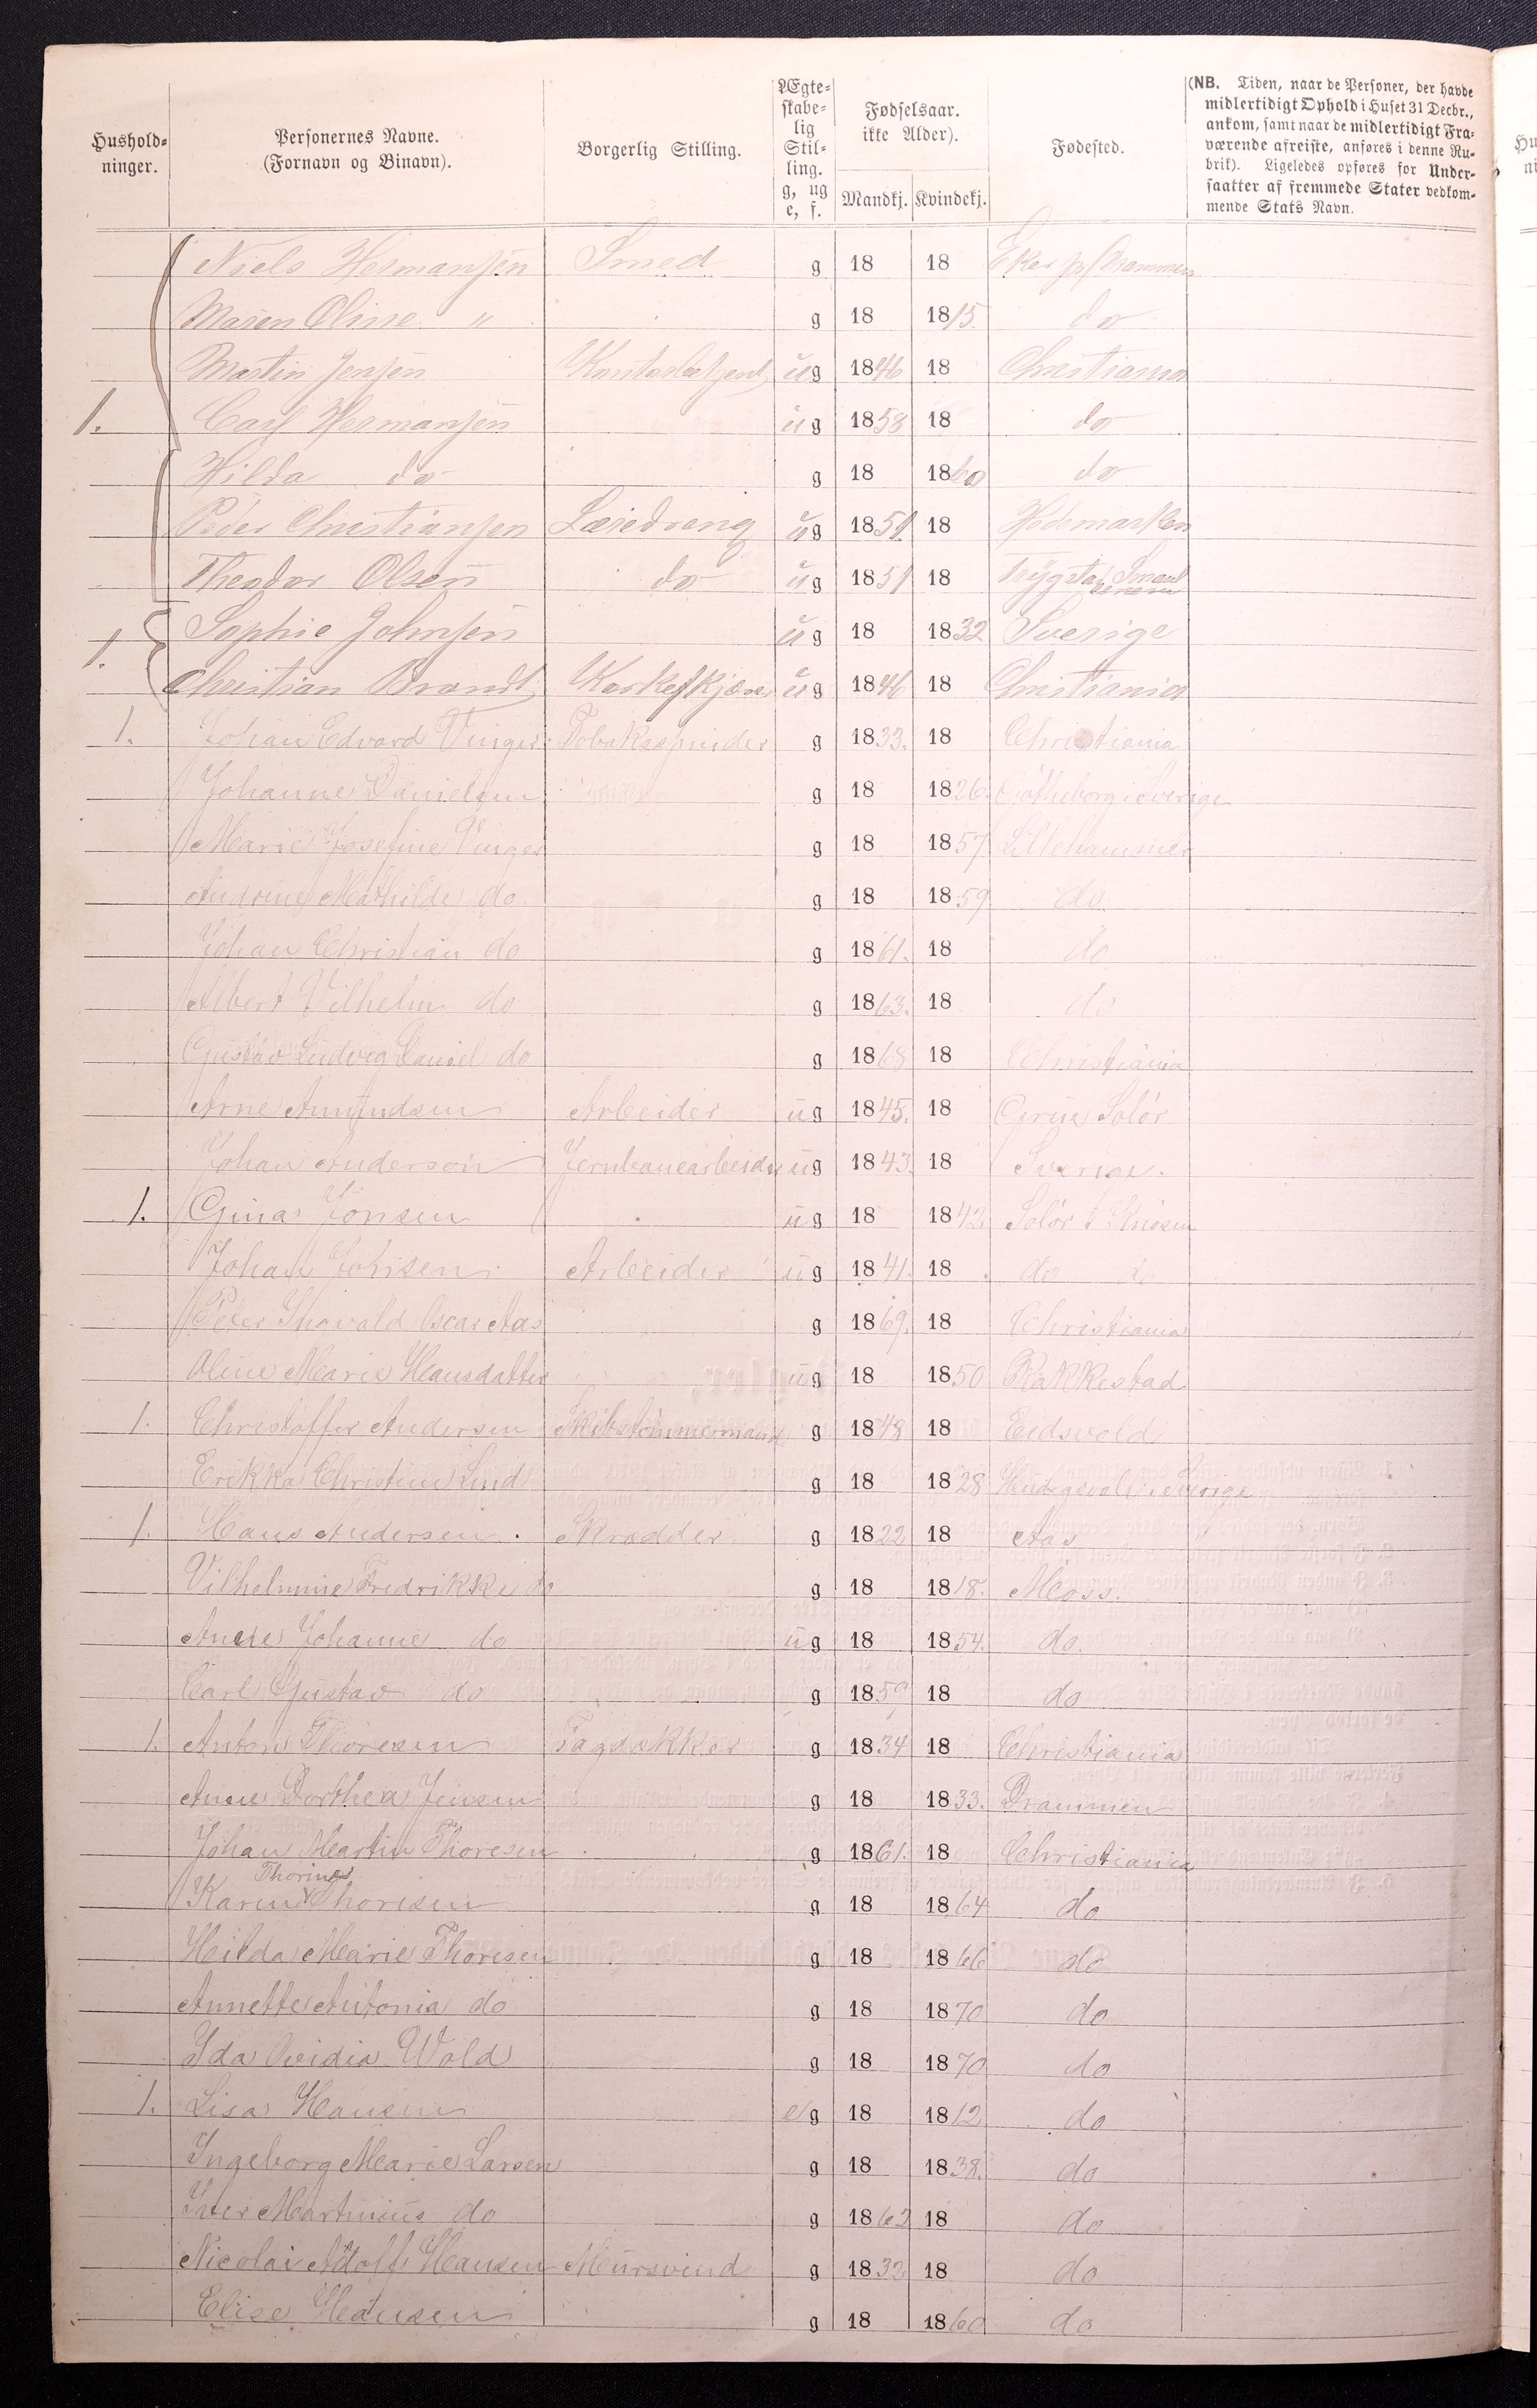 Hushold-
ninger.
Personernes Navne.
(Fornavn og Binavn).
Borgerlig Stilling.
Ægte-
skabe-
lig
Stil-
ling.
g, ug
e, f.
Fødselsaar.
ikke Alder).
Mandkj. Kvindekj.
Fødested.
(NB. Tiden, naar de Personer, der havde
midlertidigt Ophold i Huset 31 Decbr.,
ankom, samt naar de midlertidigt Fra-
værende afreiste, anføres i denne Ru-
brik). Ligeledes opføres for Under-
saatter af fremmede Stater vedkom-
mende Stats Navn.
Niels Hermansen Smed g 18 18 Eker
Maren Oline " g 18 1815 do
Martin Jensen ug 1846 18 Christiania
1. Carl Hermansen ug 1858 18 do
Hilda do g 18 1860 do
Peder Christiansen Læredreng ug 1851 18 Hedemarken
Theodor Olsen do ug 1851 18
1. Sophie Johnsen ug 18 1832 Sverige
Christian Brandt Korkeskjærer ug 1846 18 Christiania
1. Johan Edvard Vinger Tobaksspinder g 1833. 18 Christiania
Johanne Danielsen g 18 1826. Gøtheborg i Sverige
Marie Josefine Vinger g 18 1857 Lillehammer
Andrine Mathilde do g 18 1859 do
Johan Christian do g 1861. 18 do
Albert Vilhelm do g 1863. 18 do
Gustav Ludvig Daniel do g 1868 18 Christiania
Arne Amundsen Arbeider ug 1845. 18 Grue Solør
Johan Anderson Jernbanearbeider ug 1843. 18 Sverige.
1. Gina Jonsen ug 18 1842 Solør
Johan Johnsen Arbeider ug 1841. 18 do do
Peter Ingvald Oscar Aas g 1869. 18 Christiania
Oline Marie Hansdatter ug 18 1850 Rakkestad
1. Christoffer Andersen Skibstømmermand g 1848 18 Eidsvold
Erikka Christine Lind g 18 1828
1. Hans Andersen. Skrædder g 1822 18 Aas
Vilhelmine Fredrikke do g 18 1818. Moss.
Anne Johanne do ug 18 1854. do.
Carl Gustav do g 1859 18 do
1. Anton Thoresen Tagdækker g 1834 18 Christiania
Anne Dorthea Jensen g 18 1833. Drammen
Johan Martin Thoresen g 1861. 18 Christiania
Thorine
Karen Thoresen g 18 1864 do
Hilda Marie Thoresen g 18 1866 do
Annette Antonia do g 18 1870 do
Ida Ovidia Wold g 18 1870 do
1. Lisa Hansen e g 18 1812 do
Ingeborg Marie Larsen g 18 1838. do
Iver Martinius do g 1862 18 do
Nicolai Adolf Hansen Mursvend g 1832 18 do
Elise Hansen g 18 1860 do